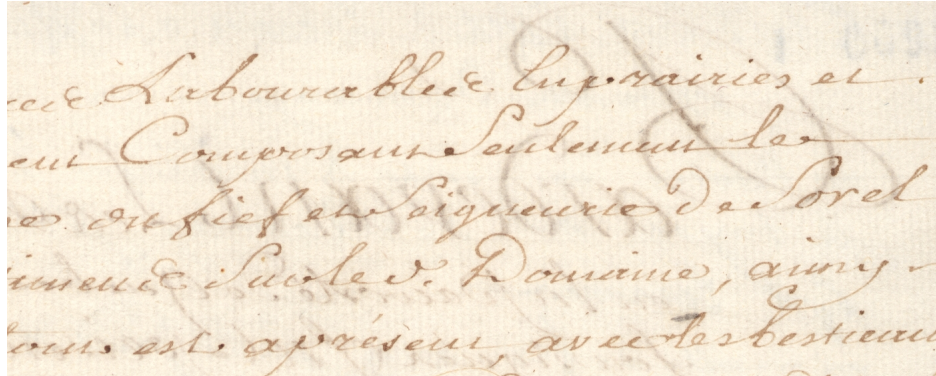 Labourables En prairies et
ent Composant Seulement le
du fief et Seigneurie De Sorel
Sur le d. Domaine, ainsy
tout est apresent, avec les bestiaux